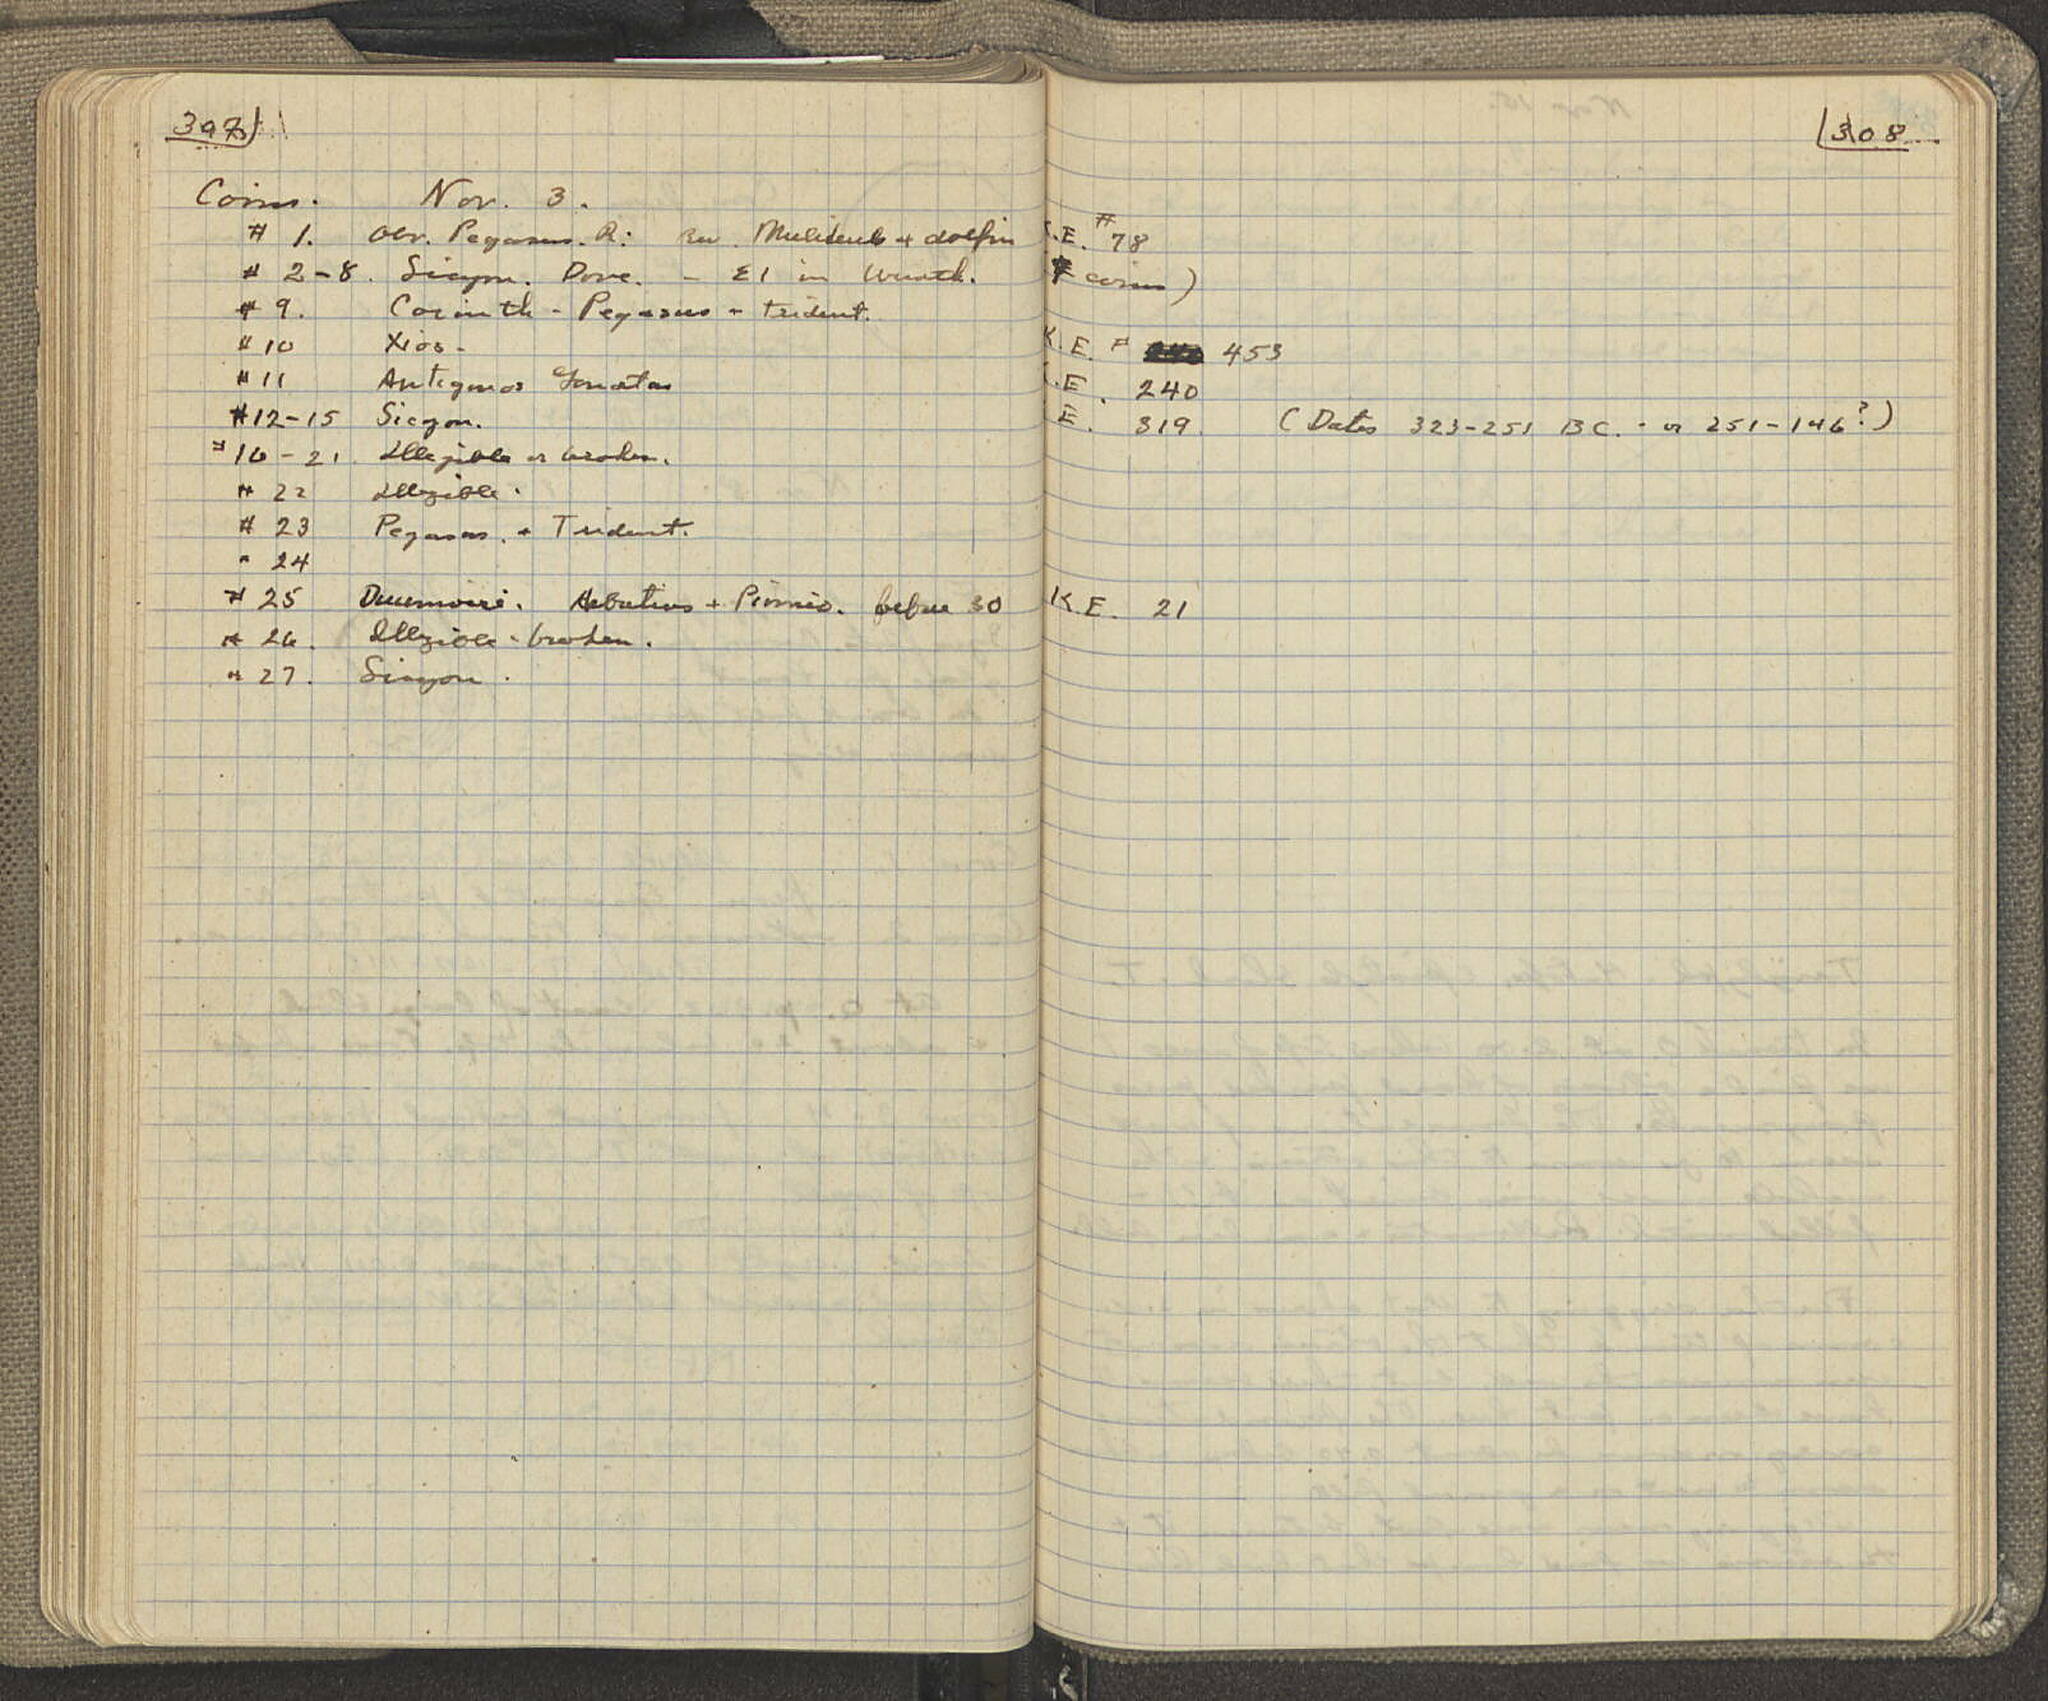 397
Coins. Nov. 3.
# 1. Obv. Pegasus. R: Rev. + dolfin
# 2-8. Sicyon. Dove. - ΣΙ in wreath.
# 9. Corinth - Pegasus + trident.
# 10 Χios -
# 11 Antigonos Gonatas
# 12-15 Sicyon.
# 16-21. Illegible or broken.
# 22 Illegible.
# 23 Pegasos. + Trident.
" 24
# 25 Duumviri. Aebutius + Pinnio. before 30
# 26. Illegible - broken.
" 27. Sicyon.
308
K.E. # 78
coins)
K.E. # 453
K.E. 240
K.E. 319. (Dates 323-251 BC. - or 251-146?)
K.E. 21